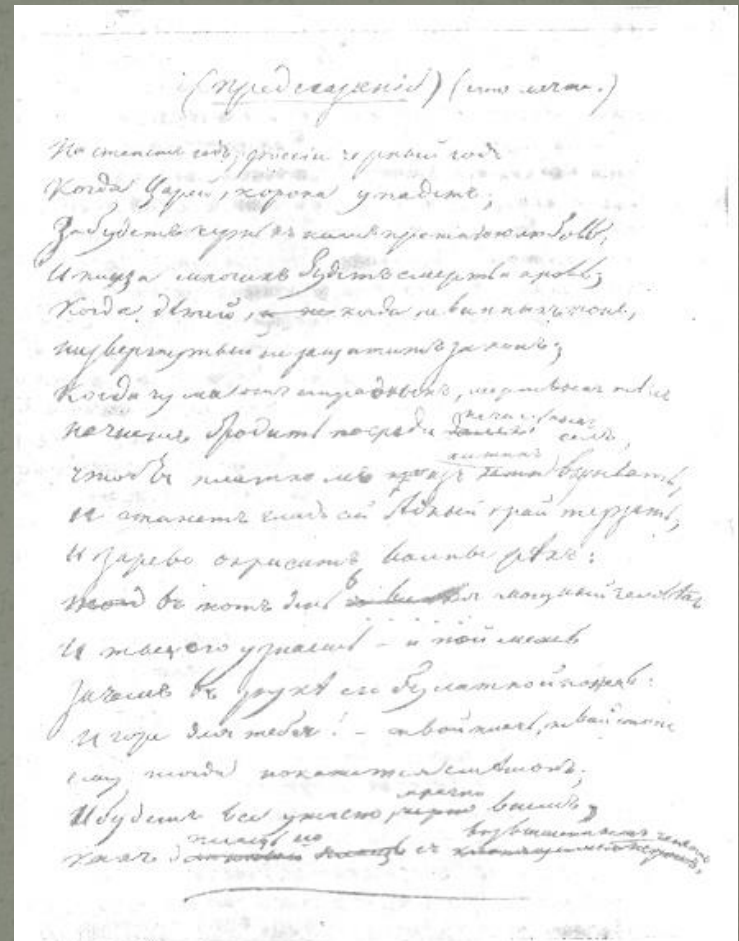 (Предсказаніе) (это мечта.)
Настанетъ годъ, Россіи черный годъ
Когда Царей корона упадетъ;
Забудетъ чернь къ нимъ прежнюю любовь,
И пища многихъ будетъ смерть и кровь;
Когда дѣтей, когда невинныхъ женъ,
низвергнутый не защититъ законъ;
Когда чума отъ смрадныхъ, мертвыхъ тѣлъ
начнетъ бродить посреди печальныхъ селъ,
чтобы платкомъ изъ хижинъ вызывать,
И станетъ гладъ сей бѣдный край терзать,
И зарево окраситъ волны рѣкъ:
въ тотъ день явится мощный человѣкъ
И ты его узнаешь – и поймешь
Зачемъ въ рукѣ его булатной ножъ:
И горе для тебя! – твой плачь, твой стонъ
ему тогда покажется смѣшонъ;
И будетъ все ужасно, мрачно въ немъ,
какъ плащь его съ возвышеннымъ челомъ